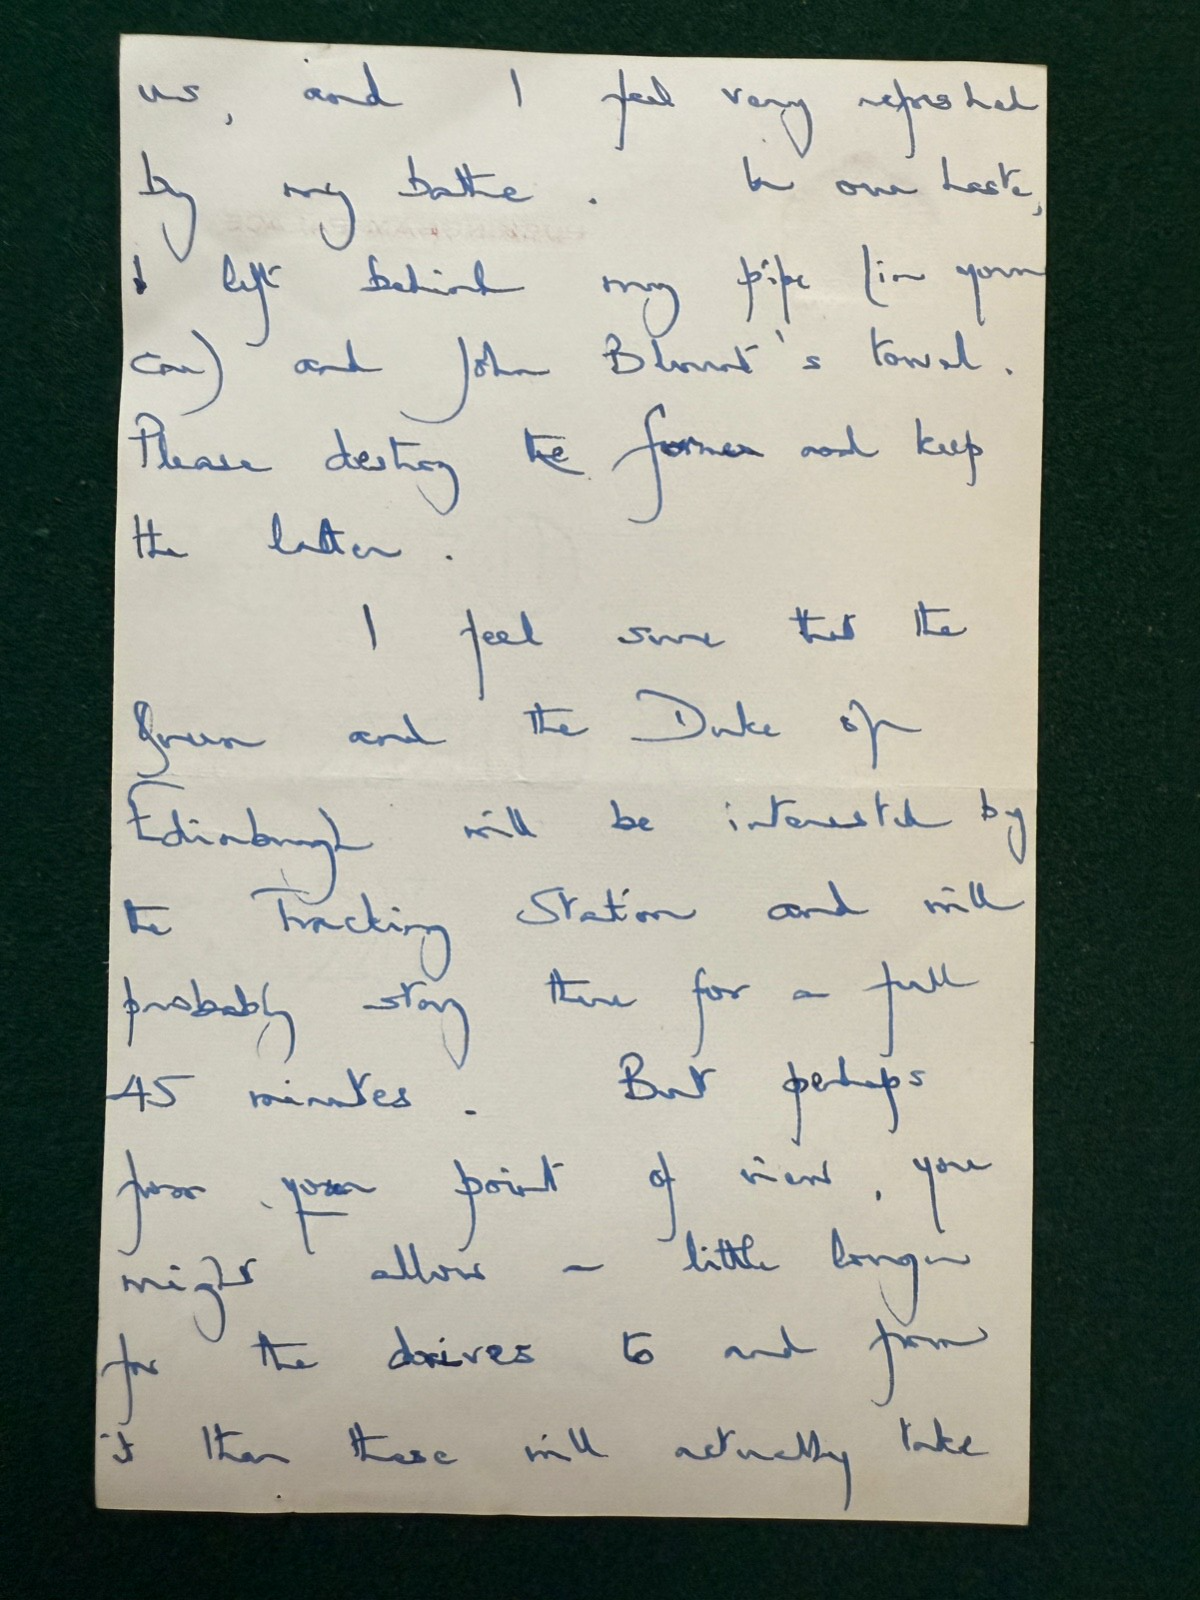 us, and I feel very refreshed
by my bathe. In our haste,
I left behind my pipe (in your
car) and John Blount's towel.
Please destroy the former and keep
the latter.
I feel sure that the
Queen and the Duke of
Edinburgh will be interested by
the Tracking Station and will
probably stay there for a full
45 minutes. But perhaps
from your point of view, you
might allow a little longer
for the drives to and from
it than these will actually take